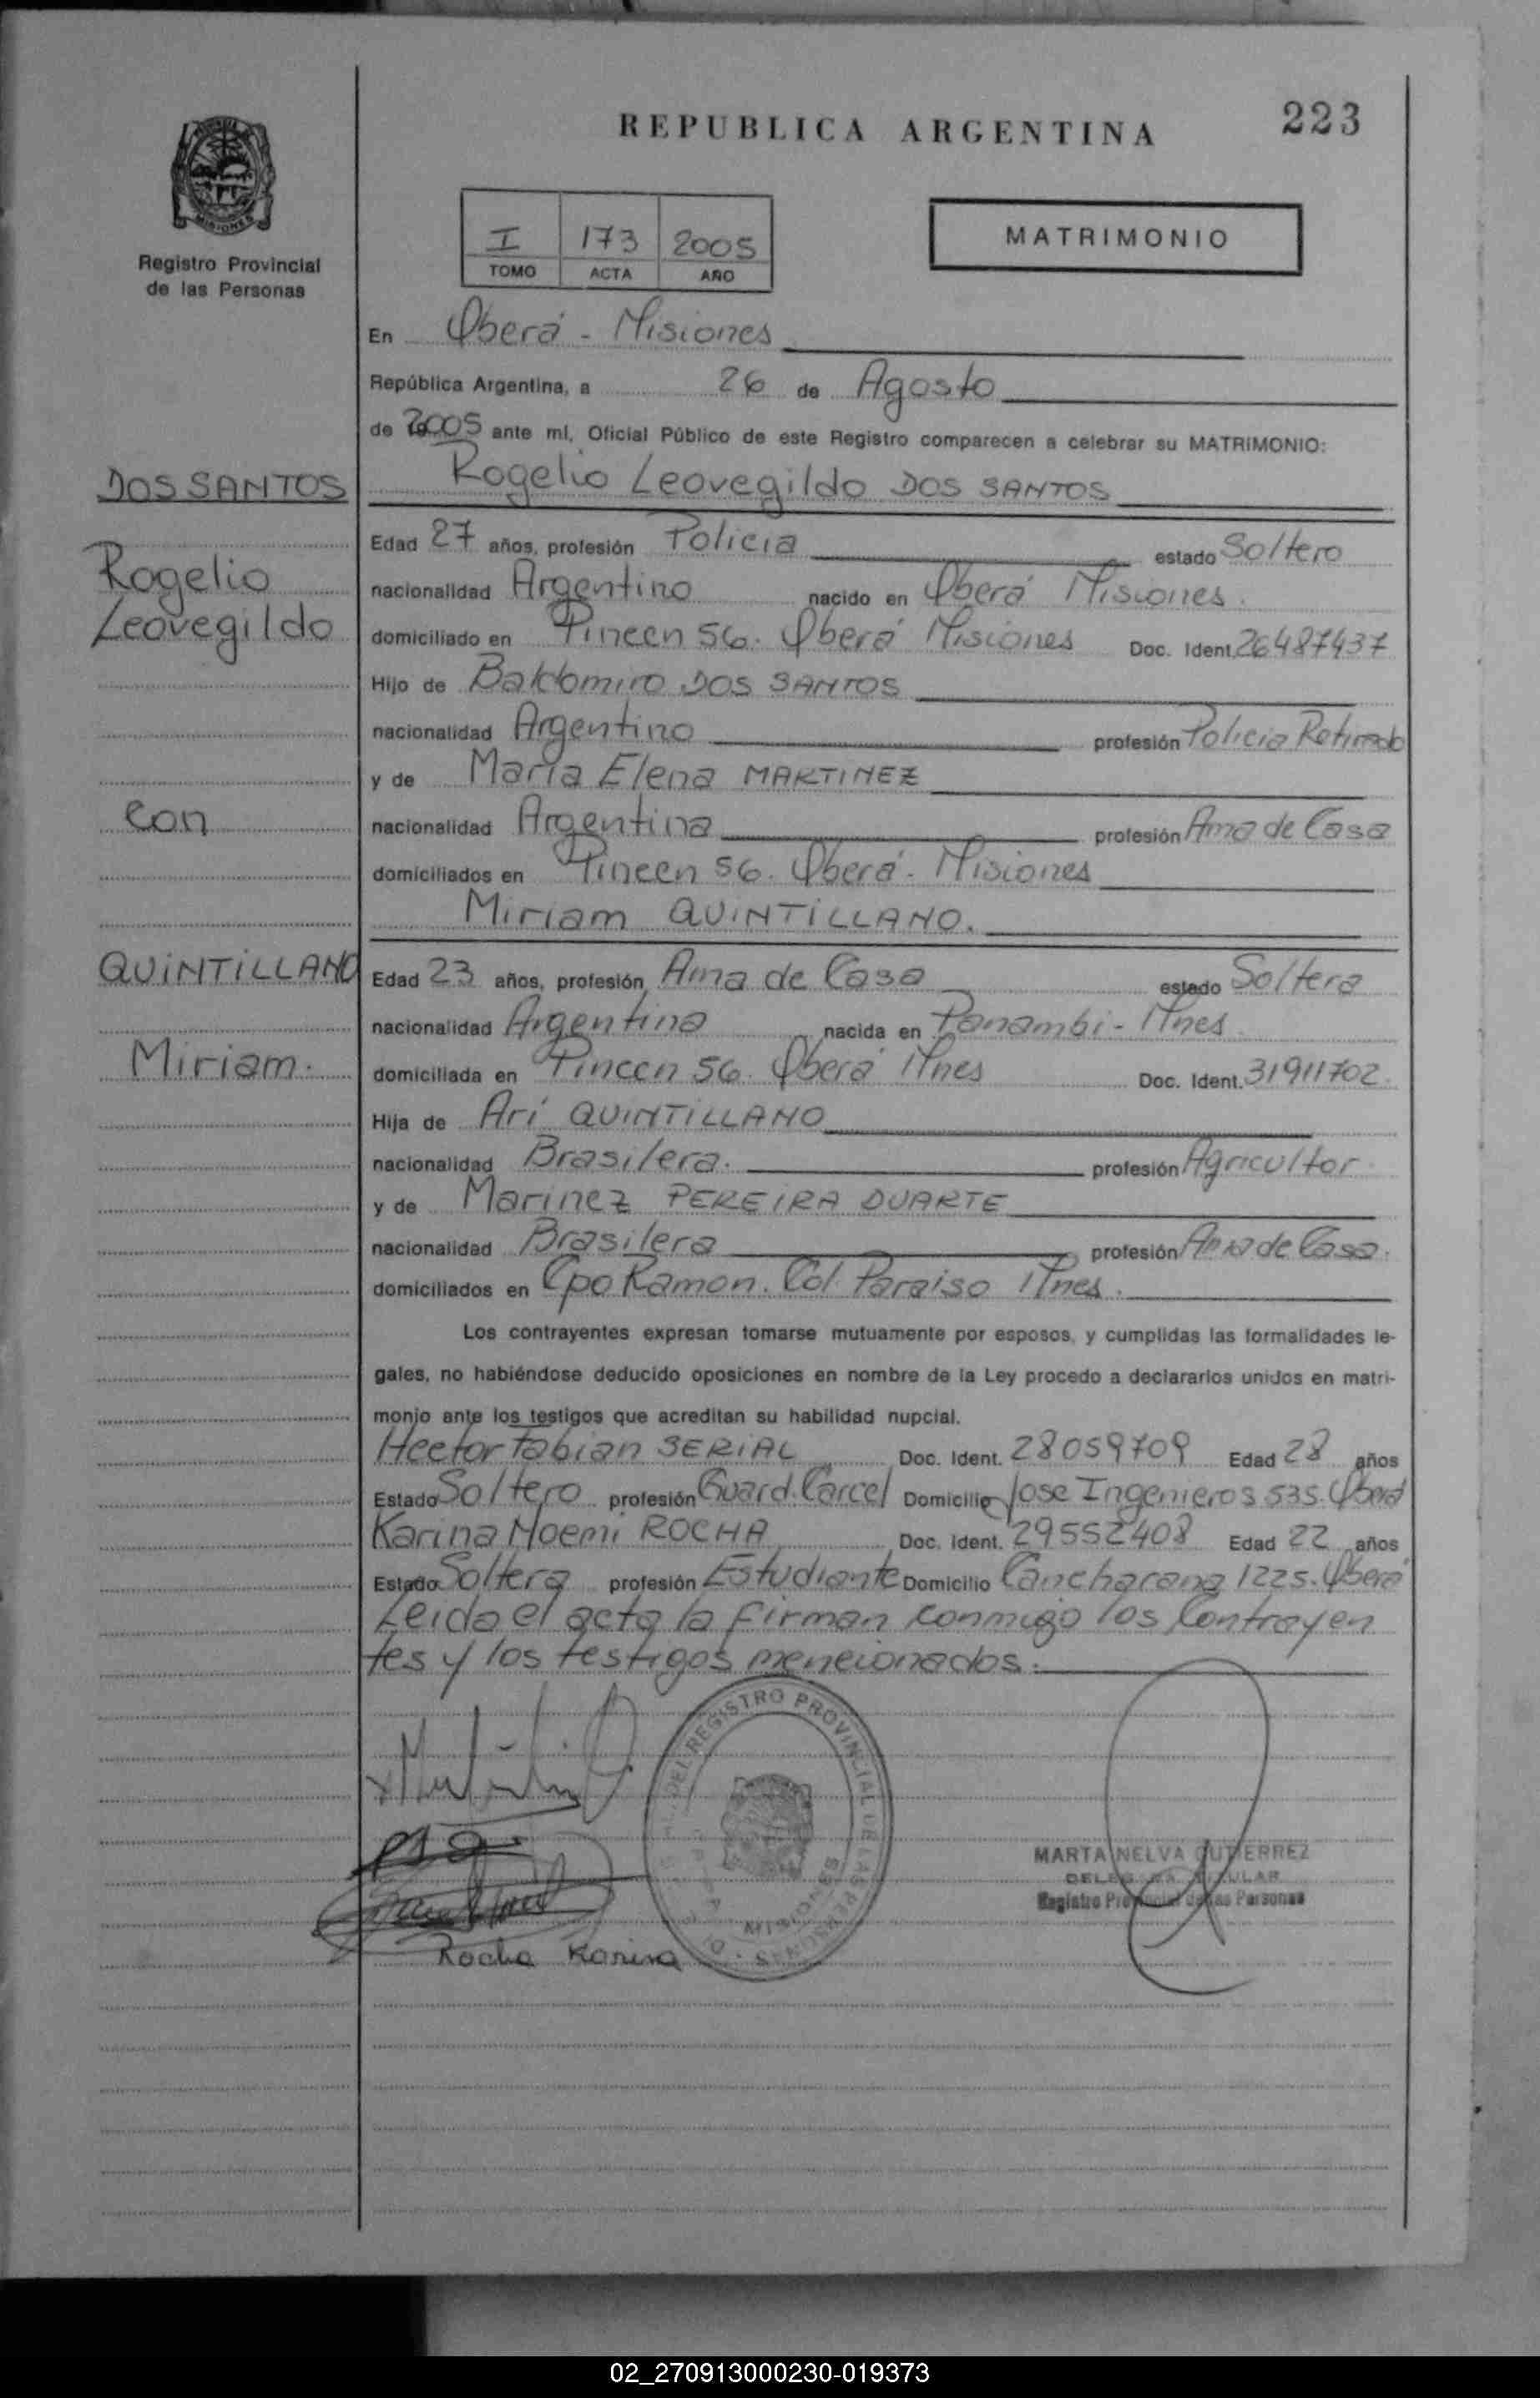 REPUBLICA ARGENTINA
223
MISIONES
Registro Provincial
de las Personas
I 173 2005
TOMO ACTA AÑO
MATRIMONIO
En Oberá - Misiones
República Argentina, a 26 de Agosto
de 2005 ante mí, Oficial Público de este Registro comparecen a celebrar su MATRIMONIO:
DOS SANTOS
Rogelio
Leovegildo
con
QUINTILLANO
Miriam.
Rogelio Leovegildo DOS SANTOS
Edad 27 años, profesión Policia estado Soltero
nacionalidad Argentino nacido en Oberá Misiones.
domiciliado en Pincen 56. Oberá Misiones Doc. Ident. 26487437
Hijo de Baldomiro DOS SANTOS
nacionalidad Argentino profesión Policia Retirado
y de María Elena MARTINEZ
nacionalidad Argentina profesión Ama de Casa
domiciliados en Pincen 56. Oberá. Misiones
Miriam QUINTILLANO.
Edad 23 años, profesión Ama de Casa estado Soltera
nacionalidad Argentina nacida en Panambi - Mnes
domiciliada en Pincen 56. Oberá Mnes Doc. Ident. 31911702.
Hija de Ari QUINTILLANO
nacionalidad Brasilera. profesión Agricultor.
y de Marinez PEREIRA DUARTE
nacionalidad Brasilera profesión Ama de Casa.
domiciliados en Cpo Ramon. Col. Paraiso Mnes.
Los contrayentes expresan tomarse mutuamente por esposos, y cumplidas las formalidades le-
gales, no habiéndose deducido oposiciones en nombre de la Ley procedo a declararlos unidos en matri-
monio ante los testigos que acreditan su habilidad nupcial.
Hector Fabian SERIAL Doc. Ident. 28059709 Edad 28 años
Estado Soltero profesión Guard. Carcel Domicilio Jose Ingenieros 535. Oberá
Karina Noemi ROCHA Doc. Ident. 29552408 Edad 22 años
Estado Soltera profesión Estudiante Domicilio Cancharana 1225. Oberá
Leida el acta la firman conmigo los Contrayen
tes y los testigos mencionados.
DEL REGISTRO PROVINCIAL DE LAS PERSONAS
MISIONES
MARTA NELVA GUTIERREZ
TITULAR
Registro Provincial de las Personas
Rocha Karina
02_270913000230-019373